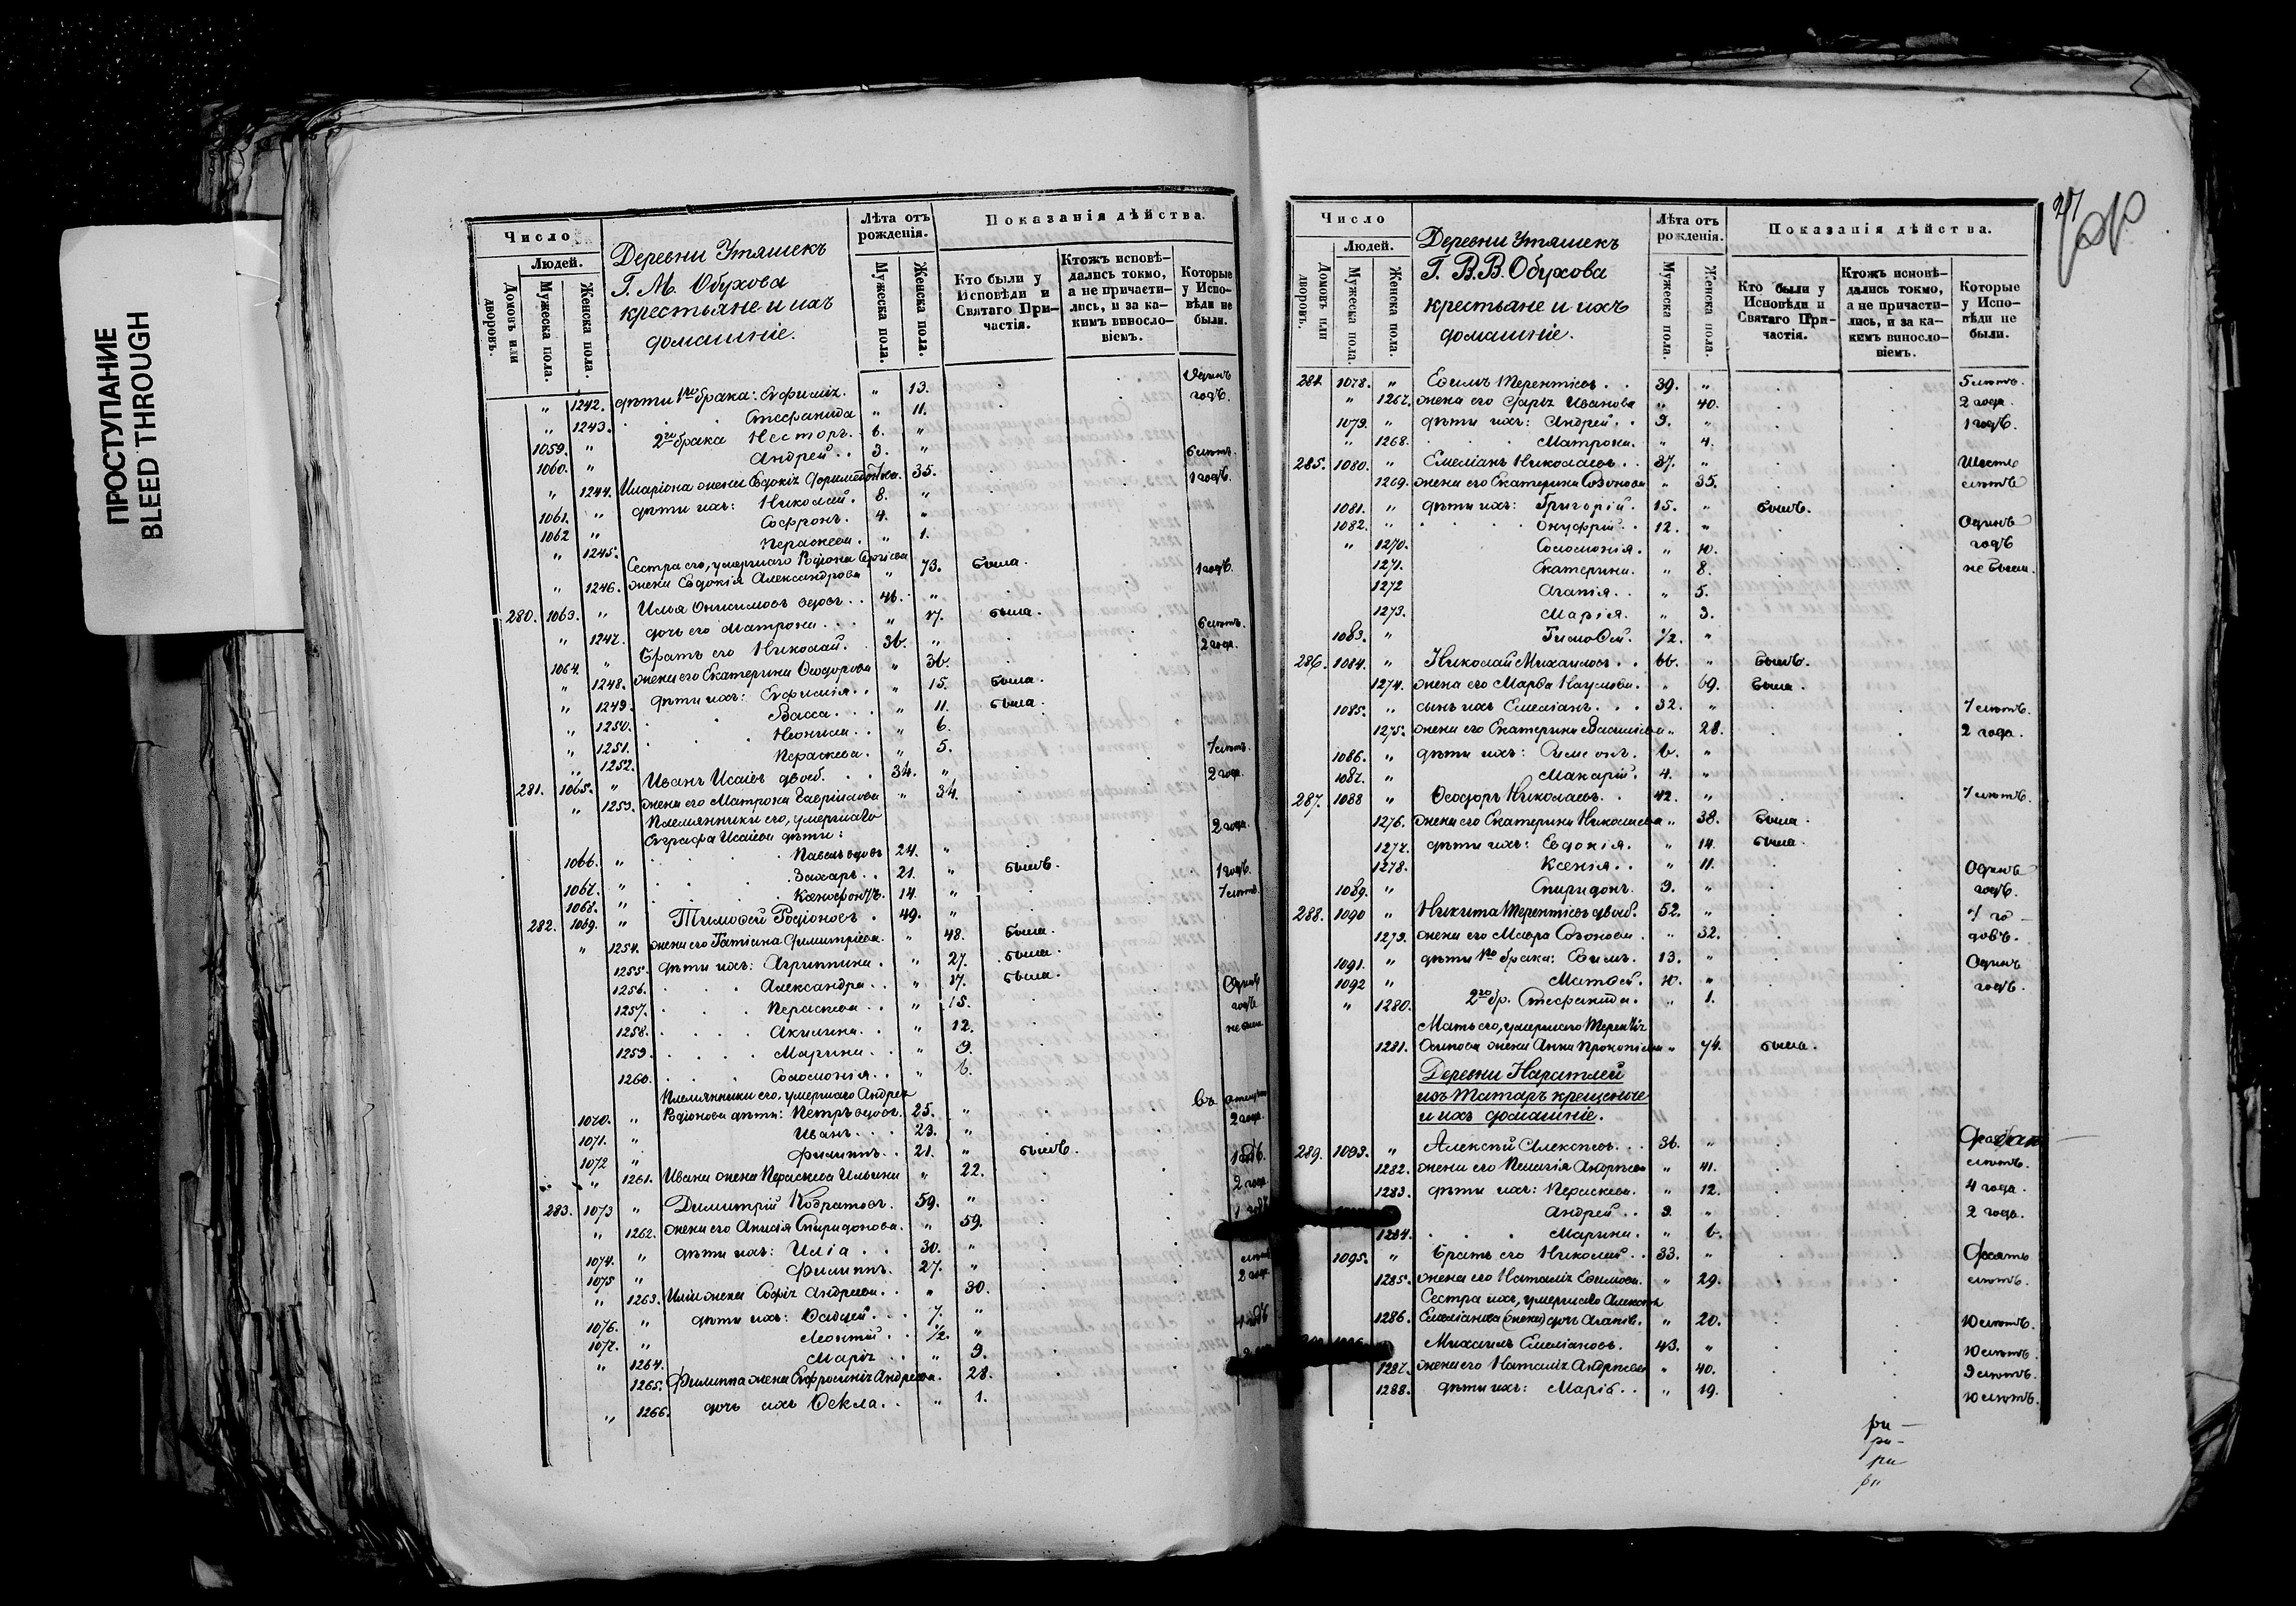 ПРОСТУПАНИЕ
BLEED THROUGH
Число
Людей.
Домовъ или дворовъ.
Мужеска пола.
Женска пола.
Деревни Утяшекъ
Г. М. Обухова
крестьяне и ихъ
домашніе.
Лѣта отъ рожденія.
Мужеска пола.
Женска пола.
Показанія дѣйства.
Кто были у Исповѣди и Святаго Причастія.
Ктожъ исповѣдались токмо, а не причастились, и за какимъ винословіемъ.
Которые у Исповѣди не были.
" 1242. дѣти 1го брака: Евфимія. " 13. Одинъ
" 1243. Стефанида " 11. годъ.
1059. " 2го брака Несторъ. 6. "
1060. " Андрей 3. " 6 лѣтъ.
" 1244. Иларіона жена Евдокія 35. 1 годъ.
1061. " дѣти ихъ: Николай. 8. "
1062 " Софронъ. 4. "
" 1245. Параскева. " 1.
Сестра его, умершаго Родіона Сергіева
" 1246. жена Евдокія Александрова " 73. была.
280. 1063. " Илья Онисимовъ вдовъ 46. " 1 годъ.
" 1247. дочь его Матрона " 17. была.
1064. " Братъ его Николай. 36. " 6 лѣтъ.
" 1248. жена его Екатерина Ѳеодорова " 36. 2 года.
" 1249. дѣти ихъ: Евфимія " 15. была.
" 1250. Васса " 11. была.
" 1251. Неонила " 6.
" 1252. Параскева. " 5.
281. 1065. " Иванъ Исаіевъ двоеб. 34. " 7 лѣтъ.
" 1253. жена его Матрона Гавріилова " 34. 2 года.
Племянники его, умершаго
Евграфа Исаіева дѣти:
1066. " Павелъ вдовъ 24. " 2 года.
1067. " Захаръ 21. " былъ.
1068. " Ксенофонтъ. 14. " 1 годъ.
282. 1069. " Тимофей Родіоновъ 49. " 7 лѣтъ.
" 1254. жена его Татіана Димитріева. " 48. была.
1255. дѣти ихъ: Агриппина " 27. была.
1256. Александра " 17. была.
1257. Параскева " 15. Одинъ
1258. Акилина " 12. годъ
1259. Марина " 9. не были
1260. Соломонія " 6.
Племянники его, умершаго Андрея
1070. " Родіонова дѣти: Петръ вдовъ. 25. " въ
1071. " Иванъ 23. " 2 года.
1072 " Филиппъ 21. " былъ.
" 1261. Ивана жена Параскева Ильина " 22. 1 годъ.
283. 1073 " Димитрій Кодратовъ 59. " 2 года.
" 1262. жена его Анисія Спиридонова. " 59. 1 годъ
1074. " дѣти ихъ: Илія 30. "
1075 " Филиппъ. 27. "
" 1263. Иліи жена Софія Андреева " 30. 2 года.
1076. " дѣти ихъ: Ѳаддей 7. "
1077. " Леонтій 1/2. "
" 1264. Марія " 9.
1265. Филиппа жена Евфросинія Андреева. 28.
" 1266. дочь ихъ Ѳекла " 1.
Число
Людей.
Домовъ или дворовъ.
Мужеска пола.
Женска пола.
Деревни Утяшекъ
Г. В. В. Обухова
крестьяне и ихъ
домашніе.
Лѣта отъ рожденія.
Мужеска пола.
Женска пола.
Показанія дѣйства.
Кто были у Исповѣди и Святаго Причастія.
Ктожъ исповѣдались токмо, а не причастились, и за какимъ винословіемъ.
Которые у Исповѣди не были.
284. 1078. " Евѳимъ Терентіевъ 39. " 5 лѣтъ.
" 1267. жена его Дарія Иванова " 40. 2 года.
1079. " дѣти ихъ: Андрей 9. " 1 годъ.
" 1268. Матрона. " 4.
285. 1080. " Емеліанъ Николаевъ 37. " Шесть
1269. жена его Екатерина Созонова " 35. лѣтъ
1081. " дѣти ихъ: Григорій. 15. " былъ.
1082. " Онуфрій 12. " Одинъ
" 1270. Соломонія. " 10. годъ
1271. Екатерина. " 8. не были.
1272 Агапія " 5.
1273. Марія. " 3.
1083. " Тимоѳей. 1/2. "
286. 1084. " Николай Михаиловъ 66. " былъ.
1274. жена его Марѳа Наумова. " 69. была.
1085. " сынъ ихъ Емеліанъ 32. " 7 лѣтъ.
1275. жена его Екатерина Василіева " 28. 2 года.
1086. " дѣти ихъ: Симеонъ. 6. "
1087. " Макарій. 4. "
287. 1088 " Ѳеодоръ Николаевъ 42. " 7 лѣтъ.
1276. жена его Екатерина Николаева " 38. была.
1277. дѣти ихъ: Евдокія. " 14. была.
1278. Ксенія " 11. Одинъ
1089. " Спиридонъ. 9. " годъ.
288. 1090 " Никита Терентіевъ двоеб. 52. " 4 го-
1279. жена его Мавра Созонова " 32. довъ.
1091. " дѣти 1го брака: Евѳимъ. 13. " Одинъ
1092 " Матѳей. 10. " годъ.
" 1280. 2го бр. Стефанида. " 1.
Мать его, умершаго Терентія
1281. Осипова жена Анна Прокопіева " 74. была.
Деревни Наратлей
изъ Татаръ крещеные
и их домашніе.
289. 1093. " Алексѣй Алексѣевъ 36. "
1282. жена его Пелагія Андреева " 41. лѣтъ.
1283. дѣти ихъ: Параскева. " 12. 4 года.
Андрей 9. " 2 года.
1284. Марина. " 6.
1095. " Братъ его Николай 33. " Девять
1285. жена его Наталія Евѳимова. " 29. лѣтъ.
Сестра ихъ, умершаго Алексѣя
1286. Емеліанова (жена) дочь Агапія. " 20. 10 лѣтъ.
Михаилъ Емеліановъ. 43. " 10 лѣтъ.
1287. жена его Наталія Андреева " 40. 9 лѣтъ.
1288. дѣти ихъ: Марія " 19. 10 лѣтъ.